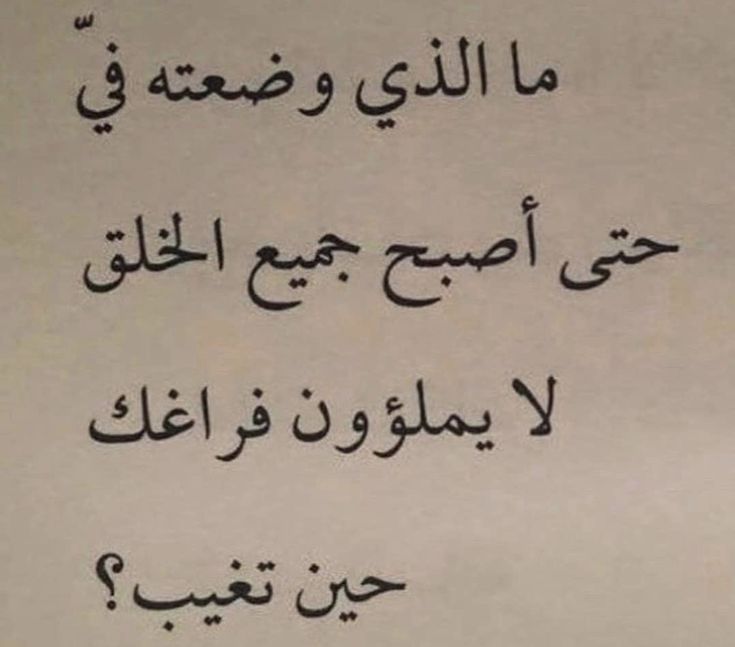 ما الذي وضعته فيّ
حتى أصبح جميع الخلق
لا يملؤون فراغك
حين تغيب؟